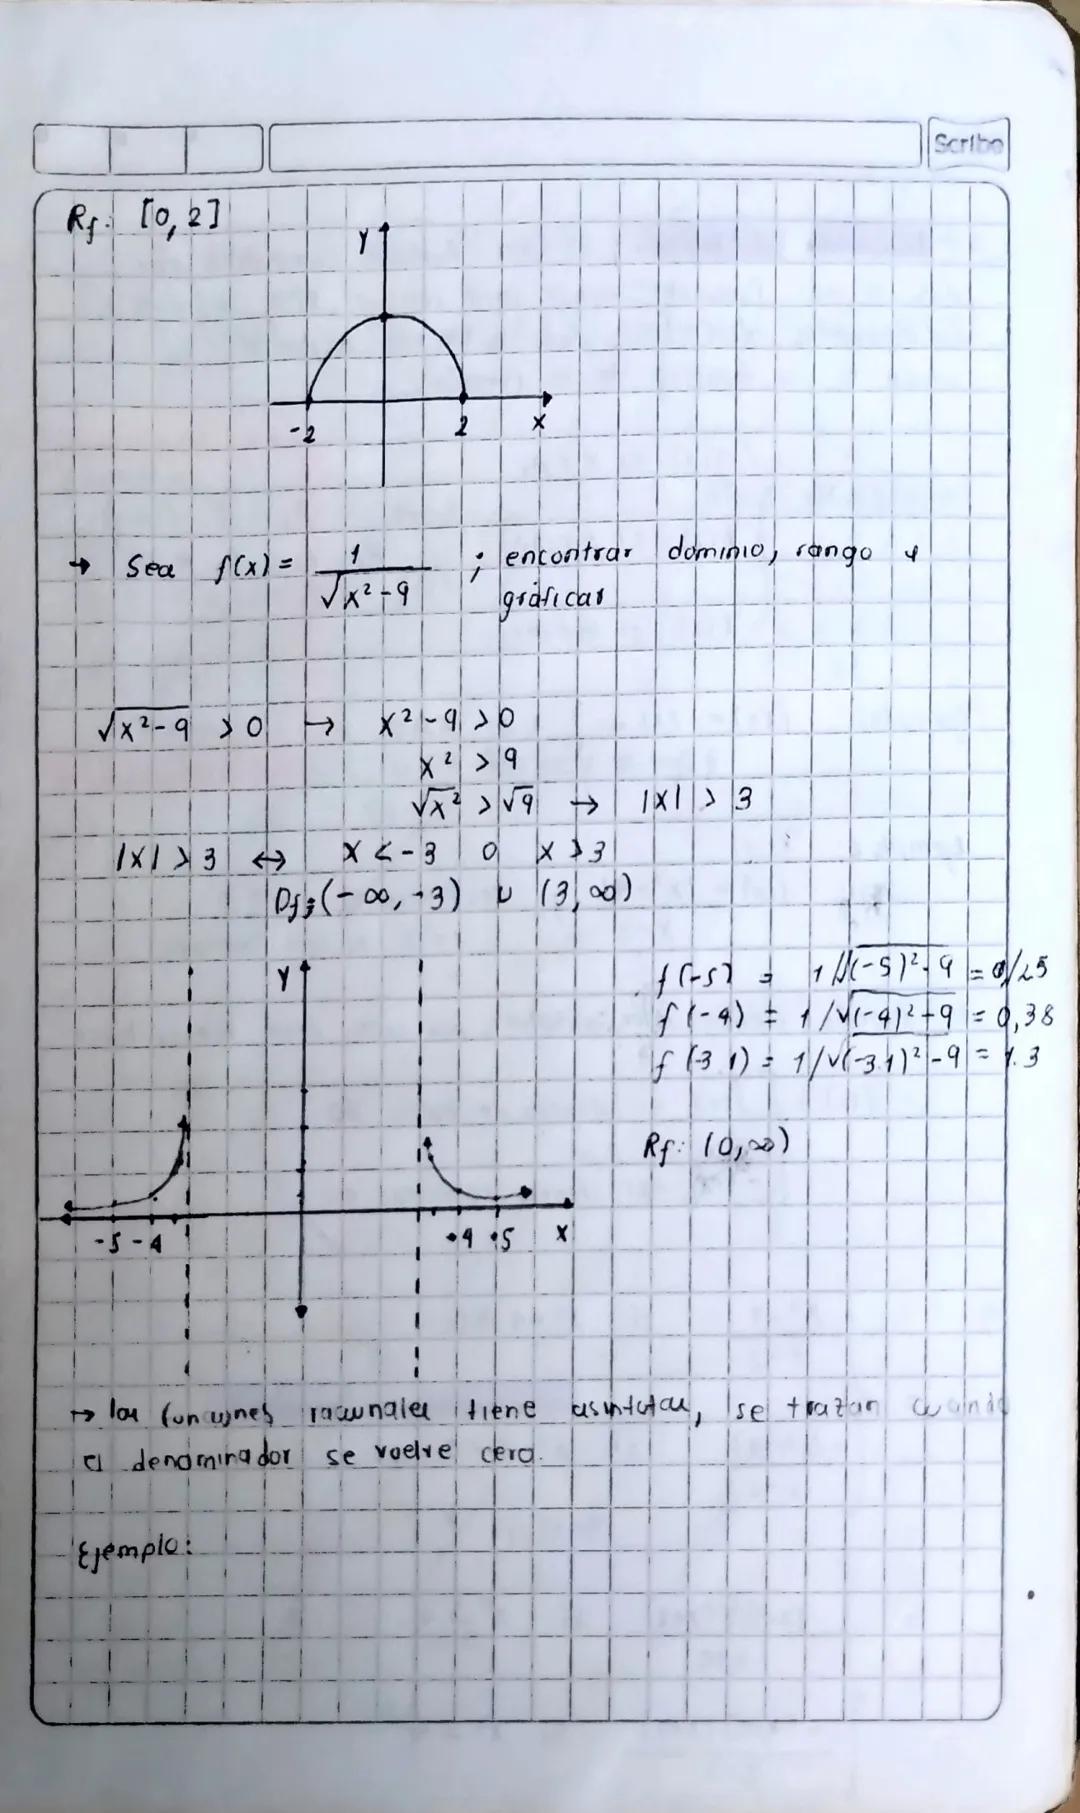 Scribe
Rf: [0, 2]
Y
-2 2 X
→ Sea f(x) = 1/√(x²-9) ; encontrar dominio, rango y
gráficar
√(x²-9) > 0 → x²-9 > 0
x² > 9
√x² > √9 → |x| > 3
|x| > 3 ↔ x < -3 o x > 3
Df: (-∞, -3) ∪ (3, ∞)
Y
f(-5) = 1/√(-5)²-9 = 0,25
f(-4) = 1/√(-4)²-9 = 0,38
f(-3.1) = 1/√(-3.1)²-9 = 1.3
Rf: (0, ∞)
-5 -4 4 5 X
→ las funciones racionales tiene asintotas, se trazan cuando
el denominador se vuelve cero.
Ejemplo: